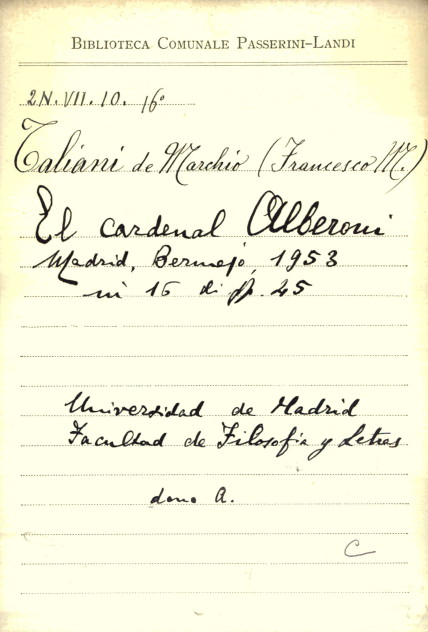 BIBLIOTECA COMUNALE PASSERINI-LANDI
2N.VII.10. 16°
Taliani de Marchio (Francesco M.)
El cardenal Alberoni
Madrid, Bermejo, 1953
in 16 di pp. 45
Universidad de Madrid
Facultad de Filosofia y Letras
dono A.
C